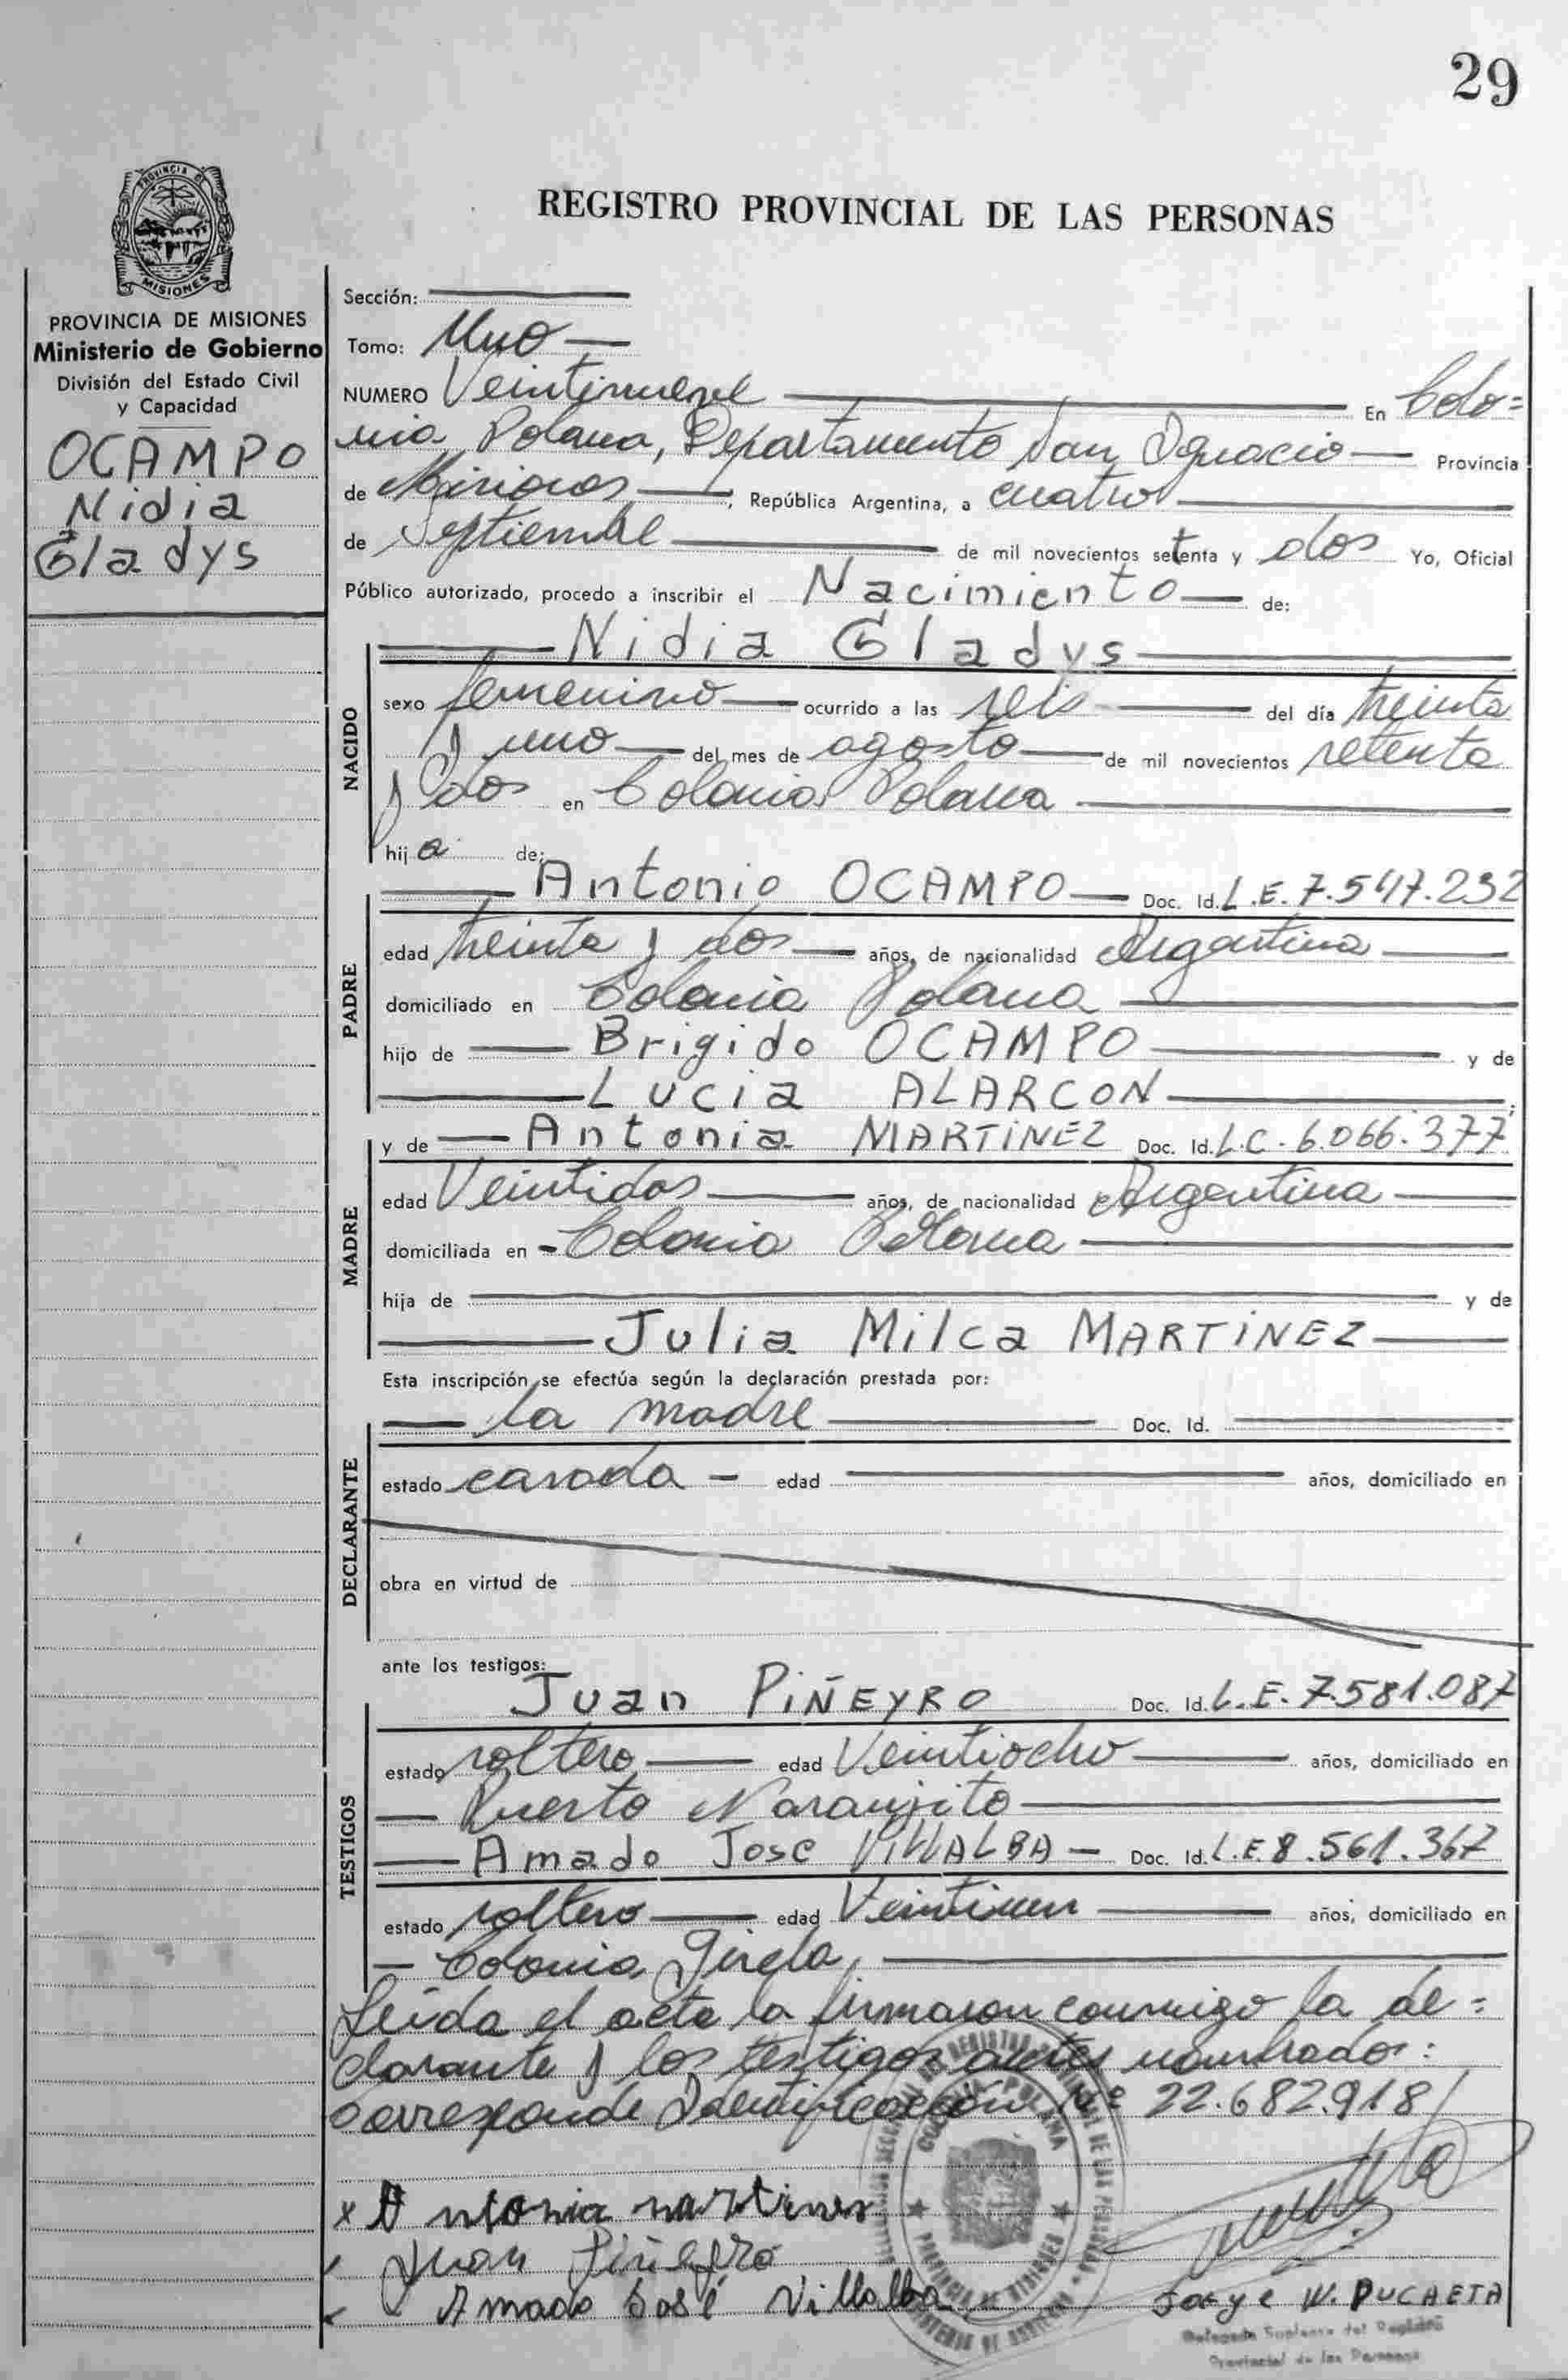 29
PROVINCIA DE
MISIONES
REGISTRO PROVINCIAL DE LAS PERSONAS
PROVINCIA DE MISIONES
Ministerio de Gobierno
División del Estado Civil
y Capacidad
OCAMPO
Nidia
Gladys
Sección:
Tomo: Uno
NUMERO Veintinueve En Colo=
nia Polana, Departamento San Ignacio Provincia
de Misiones, República Argentina, a cuatro
de Septiembre de mil novecientos setenta y dos Yo, Oficial
Público autorizado, procedo a inscribir el Nacimiento de:
NACIDO
Nidia Gladys
sexo femenino ocurrido a las seis del día treinta
y uno del mes de agosto de mil novecientos setenta
y dos en Colonia Polana
hija de:
PADRE
Antonio OCAMPO Doc. Id. L.E. 7.547.232
edad treinta y dos años, de nacionalidad Argentina
domiciliado en Colonia Polana
hijo de Brigido OCAMPO y de
Lucia ALARCON
MADRE
y de Antonia MARTINEZ Doc. Id. L.C. 6.066.377
edad Veintidos años, de nacionalidad Argentina
domiciliada en Colonia Polana
hija de y de
Julia Milca MARTINEZ
Esta inscripción se efectúa según la declaración prestada por:
DECLARANTE
la madre Doc. Id.
estado casada edad años, domiciliado en
obra en virtud de
ante los testigos:
TESTIGOS
Juan PIÑEYRO Doc. Id. L.E. 7.581.087
estado soltero edad Veintiocho años, domiciliado en
Puerto Naranjito
Amado Jose VILLALBA Doc. Id. L.E 8.561.367
estado soltero edad años, domiciliado en
Colonia
Leida el acta la firmaron conmigo la de=
clarante y los testigos antes nombrados:
Corresponde Identificación Nº 22.682.918/
x Antonia martines
Juan Piñeyro
Amado José Villalba
Jorge W.
Delegado Suplente del Registro
Provincial de las Personas
COLONIA POLANA
PROVINCIA DE MISIONES